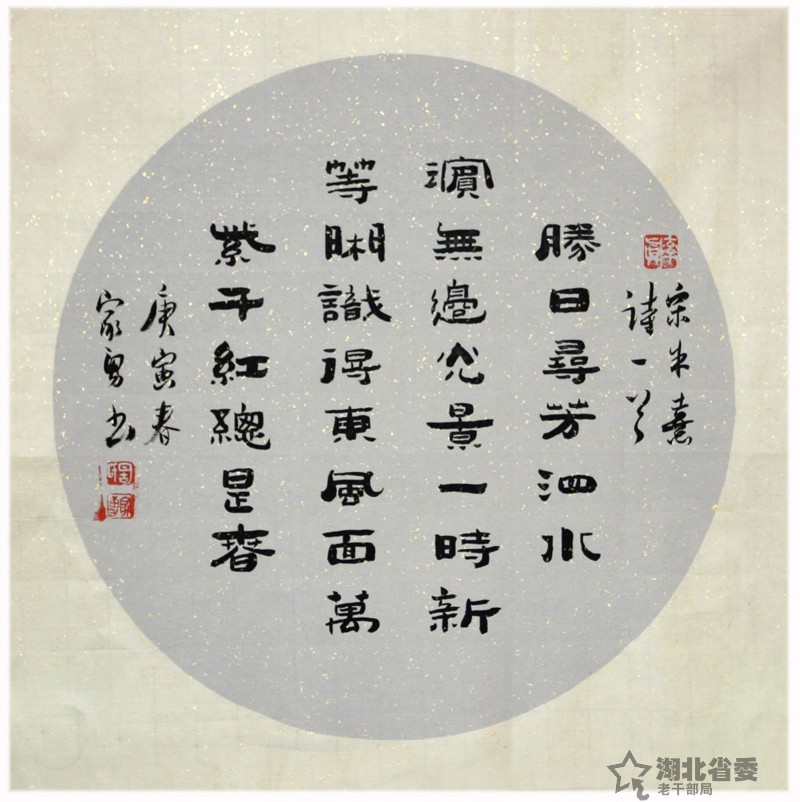 宋朱熹
詩一首
勝日尋芳泗水
濱無邊光景一時新
等閒識得東風面萬
紫千紅總是春
庚寅春
家勇书
湖北省委
老干部局